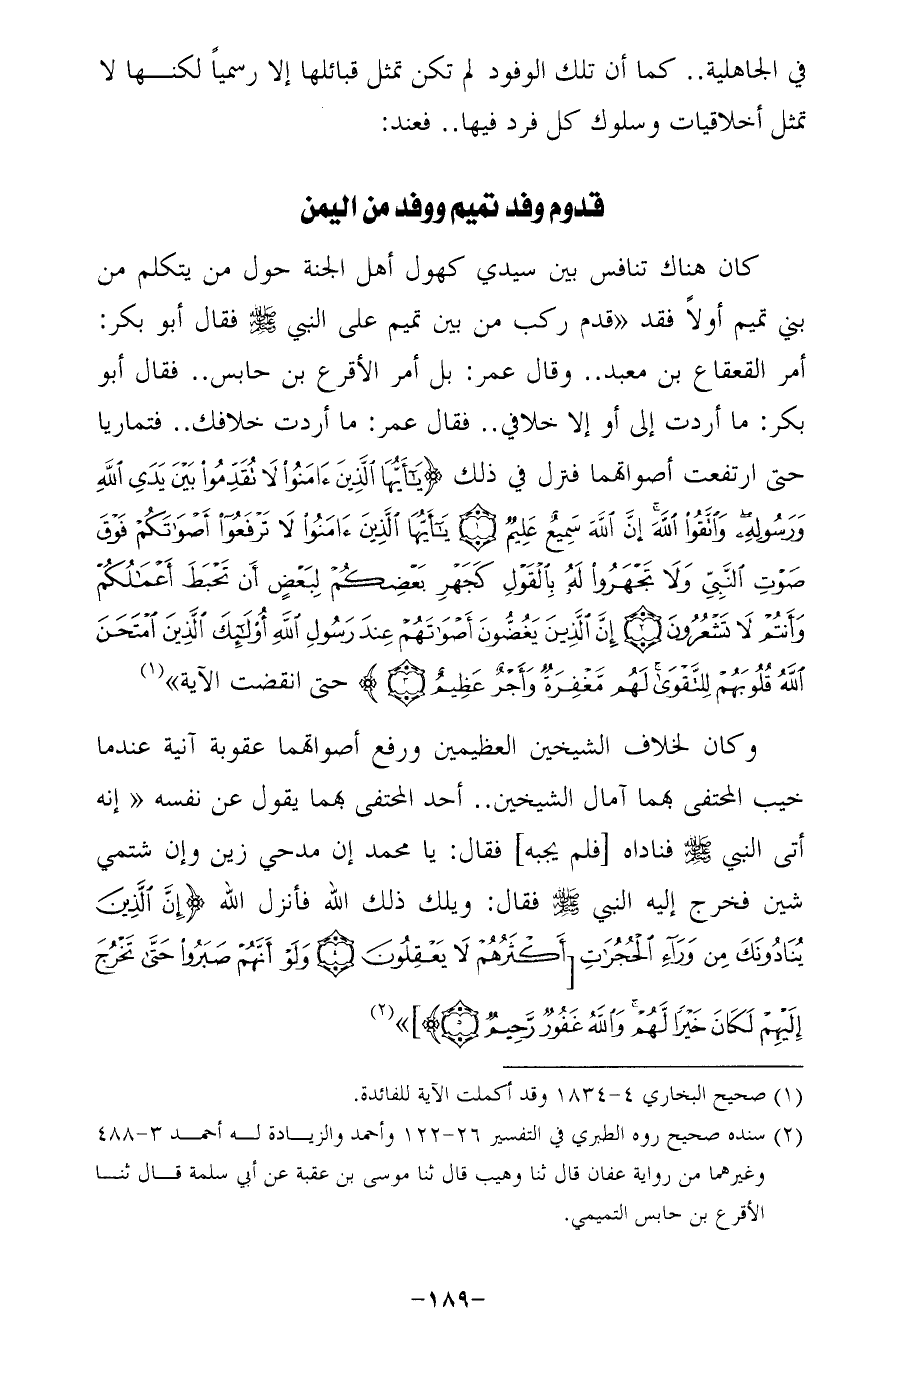 في الجاهلية.. كما أن تلك الوفود لم تكن تمثل قبائلها إلا رسمياً لكنـــها لا
تمثل أخلاقيات وسلوك كل فرد فيها.. فعند:
قدوم وفد تميم ووفد من اليمن
كان هناك تنافس بين سيدي كهول أهل الجنة حول من يتكلم من
بني تميم أولاً فقد «قدم ركب من بين تميم على النبي ﷺ فقال أبو بكر:
أمر القعقاع بن معبد.. وقال عمر: بل أمر الأقرع بن حابس.. فقال أبو
بكر: ما أردت إلى أو إلا خلافي.. فقال عمر: ما أردت خلافك.. فتماريا
حتى ارتفعت أصواتهما فنزل في ذلك ﴿يَٰٓأَيُّهَا ٱلَّذِينَ ءَامَنُوا۟ لَا تُقَدِّمُوا۟ بَيْنَ يَدَىِ ٱللَّهِ
وَرَسُولِهِۦ ۖ وَٱتَّقُوا۟ ٱللَّهَ ۚ إِنَّ ٱللَّهَ سَمِيعٌ عَلِيمٌ ۝١ يَٰٓأَيُّهَا ٱلَّذِينَ ءَامَنُوا۟ لَا تَرْفَعُوٓا۟ أَصْوَٰتَكُمْ فَوْقَ
صَوْتِ ٱلنَّبِىِّ وَلَا تَجْهَرُوا۟ لَهُۥ بِٱلْقَوْلِ كَجَهْرِ بَعْضِكُمْ لِبَعْضٍ أَن تَحْبَطَ أَعْمَٰلُكُمْ
وَأَنتُمْ لَا تَشْعُرُونَ ۝٢ إِنَّ ٱلَّذِينَ يَغُضُّونَ أَصْوَٰتَهُمْ عِندَ رَسُولِ ٱللَّهِ أُو۟لَٰٓئِكَ ٱلَّذِينَ ٱمْتَحَنَ
ٱللَّهُ قُلُوبَهُمْ لِلتَّقْوَىٰ ۚ لَهُم مَّغْفِرَةٌ وَأَجْرٌ عَظِيمٌ ۝٣﴾ حتى انقضت الآية»(١)
وكان لخلاف الشيخين العظيمين ورفع أصواتهما عقوبة آنية عندما
خيب المحتفى بهما آمال الشيخين.. أحد المحتفى بهما يقول عن نفسه « إنه
أتى النبي ﷺ فناداه [فلم يجبه] فقال: يا محمد إن مدحي زين وإن شتمي
شين فخرج إليه النبي ﷺ فقال: ويلك ذلك الله فأنزل الله ﴿إِنَّ ٱلَّذِينَ
يُنَادُونَكَ مِن وَرَآءِ ٱلْحُجُرَٰتِ [أَكْثَرُهُمْ لَا يَعْقِلُونَ ۝٤ وَلَوْ أَنَّهُمْ صَبَرُوا۟ حَتَّىٰ تَخْرُجَ
إِلَيْهِمْ لَكَانَ خَيْرًا لَّهُمْ ۚ وَٱللَّهُ غَفُورٌ رَّحِيمٌ ۝٥﴾]»(٢)
(١) صحيح البخاري ٤-١٨٣٤ وقد أكملت الآية للفائدة.
(٢) سنده صحيح روه الطبري في التفسير ٢٦-١٢٢ وأحمد والزيـادة لـــه أحمـــد ٣-٤٨٨
وغيرهما من رواية عفان قال ثنا وهيب قال ثنا موسى بن عقبة عن أبي سلمة قـــال ثنـــا
الأقرع بن حابس التميمي.
-١٨٩-